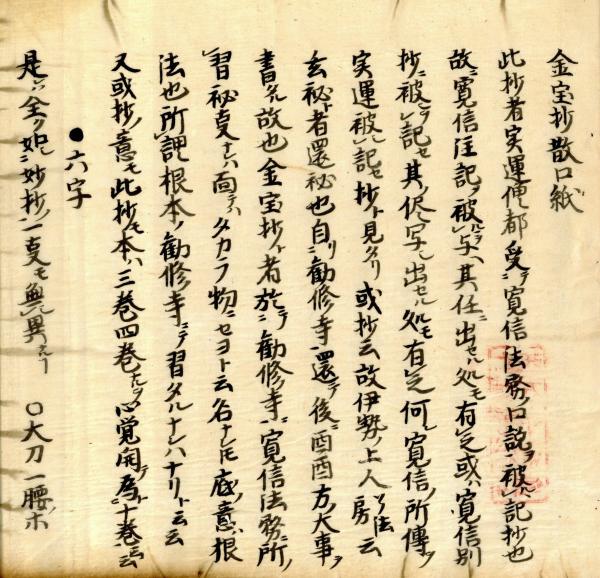 金宝抄散口紙
此抄者実運僧都受ニテ寛信法務ノ口説ヲ被レ記抄也
故ニ寛信注記ヲ被ルヲハ与ヘ其任ニ出セル処モ有之或ハ寛信別
抄ニ被ルヲハ記セ其ノ侭写シ出セル処モ有之何レ寛信ノ所傳ヲ
実運被レ記セ抄ト見タリ或抄云故伊勢ノ上人房ノ法云
玄秘ト者還秘也自リ勧修寺還テ後ニ酉酉方ノ大事ヲ
書タル故也金宝抄ト者於テ勧修寺ニ寛信法務ニ所ノ
習秘事ナレハ面テハタカラ物ニセヨト云名ナレモ底ノ意ハ根
法也所レ謂根本ノ勧修寺ニテ習タルナレハナリト云云
又或抄ノ意モ此抄モ本ハ三巻四巻タルヲ心覚開テ為ト十巻云云
●六字
是ハ全ク如シ妙抄ノ一事モ無レ異ナリ　○大刀一腰ホ